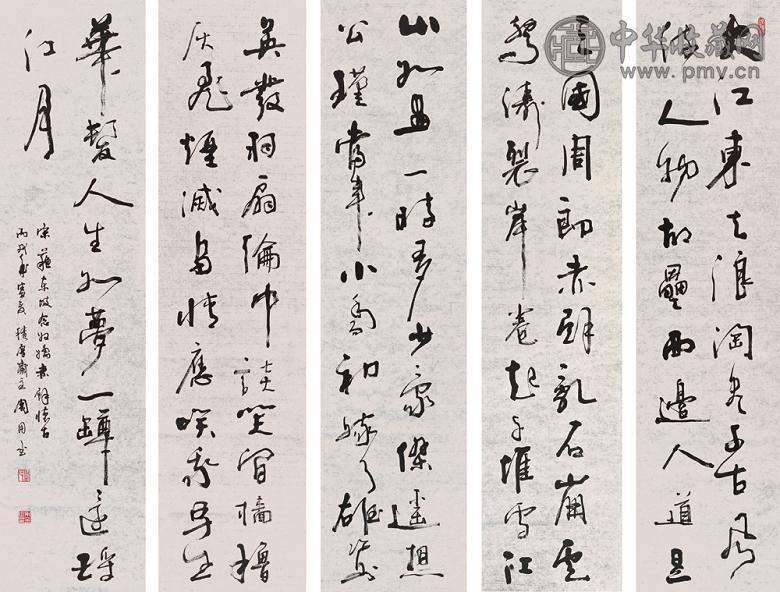 中华收藏网
www.pmv.cn
大江東去浪淘盡千古風
流人物故壘西邊人道是
三國周郎赤壁亂石崩雲
驚濤裂岸卷起千堆雪江
山如畫一時多少豪傑遙想
公瑾當年小喬初嫁了雄姿
英發羽扇綸巾談笑間檣櫓
灰飛煙滅多情應笑我早生
華髮人生如夢一罇還酹
江月
宋蘇東坡念奴嬌赤壁懷古
丙戌年 齋主周同书